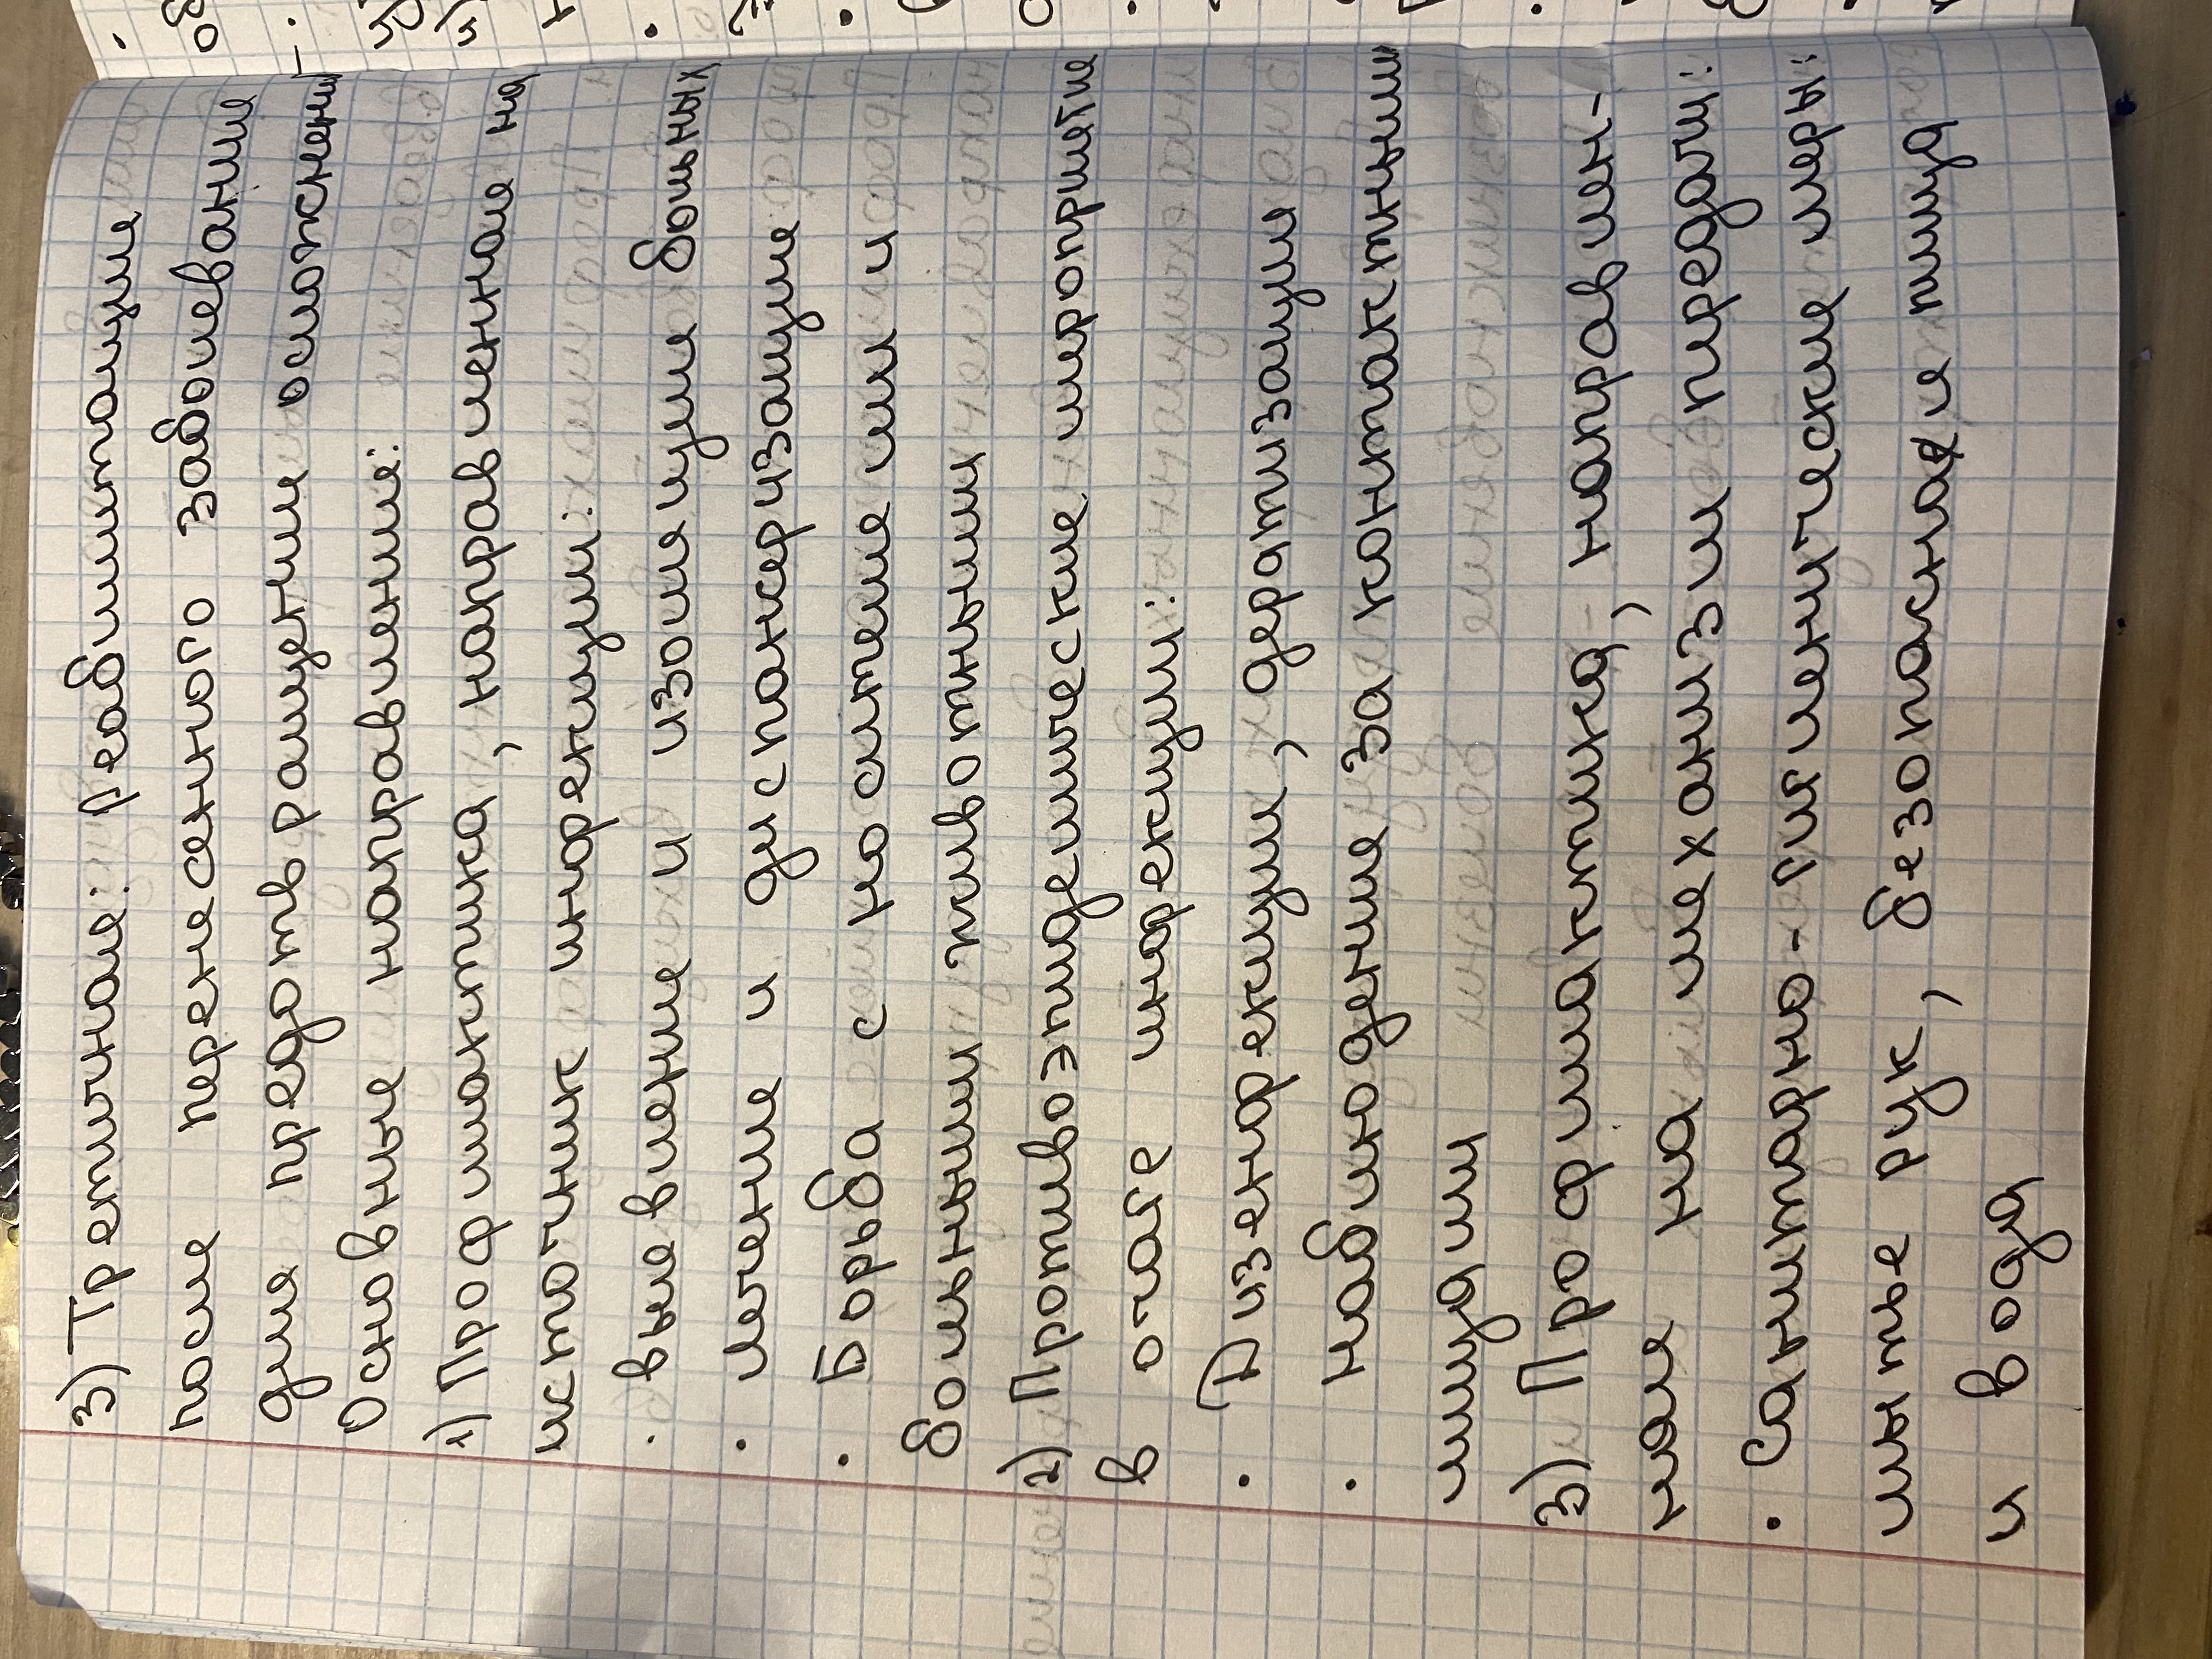 3) Третичная: реабилитация
после перенесенного заболевания
для предотвращения осложнений
Основные направления:
1) Профилактика, направленная на
источник инфекции:
· выявление и изоляция больных
· лечение и диспансеризация
· Борьба с носителями и
больными животными
2) Противоэпидемические мероприятие
в очаге инфекции:
· Дизенфекция, дератизация
· наблюдение за контактными
лицами
3) Профилактика, направлен-
ная на механизм передачи:
· Санитарно-гигиенические меры:
мытье рук, безопасная пища
и вода